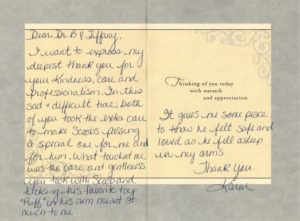 Dear Dr. B & Tiffany,
I want to express my
deepest thank you for
your kindness, care, and
professionalism. In this
sad & difficult time, both
of you took the extra care
to make Scoobs passing
a special one for me and
for him. What touched me
was the care and gentleness
you took with Scoob and
his favorite toy
"Puff" in his arm meant so
much to me
Thinking of you today
with warmth
and appreciation.
It gives me some peace
to know he felt safe and
loved as he fell asleep
in my arms.
Thank You
Karen